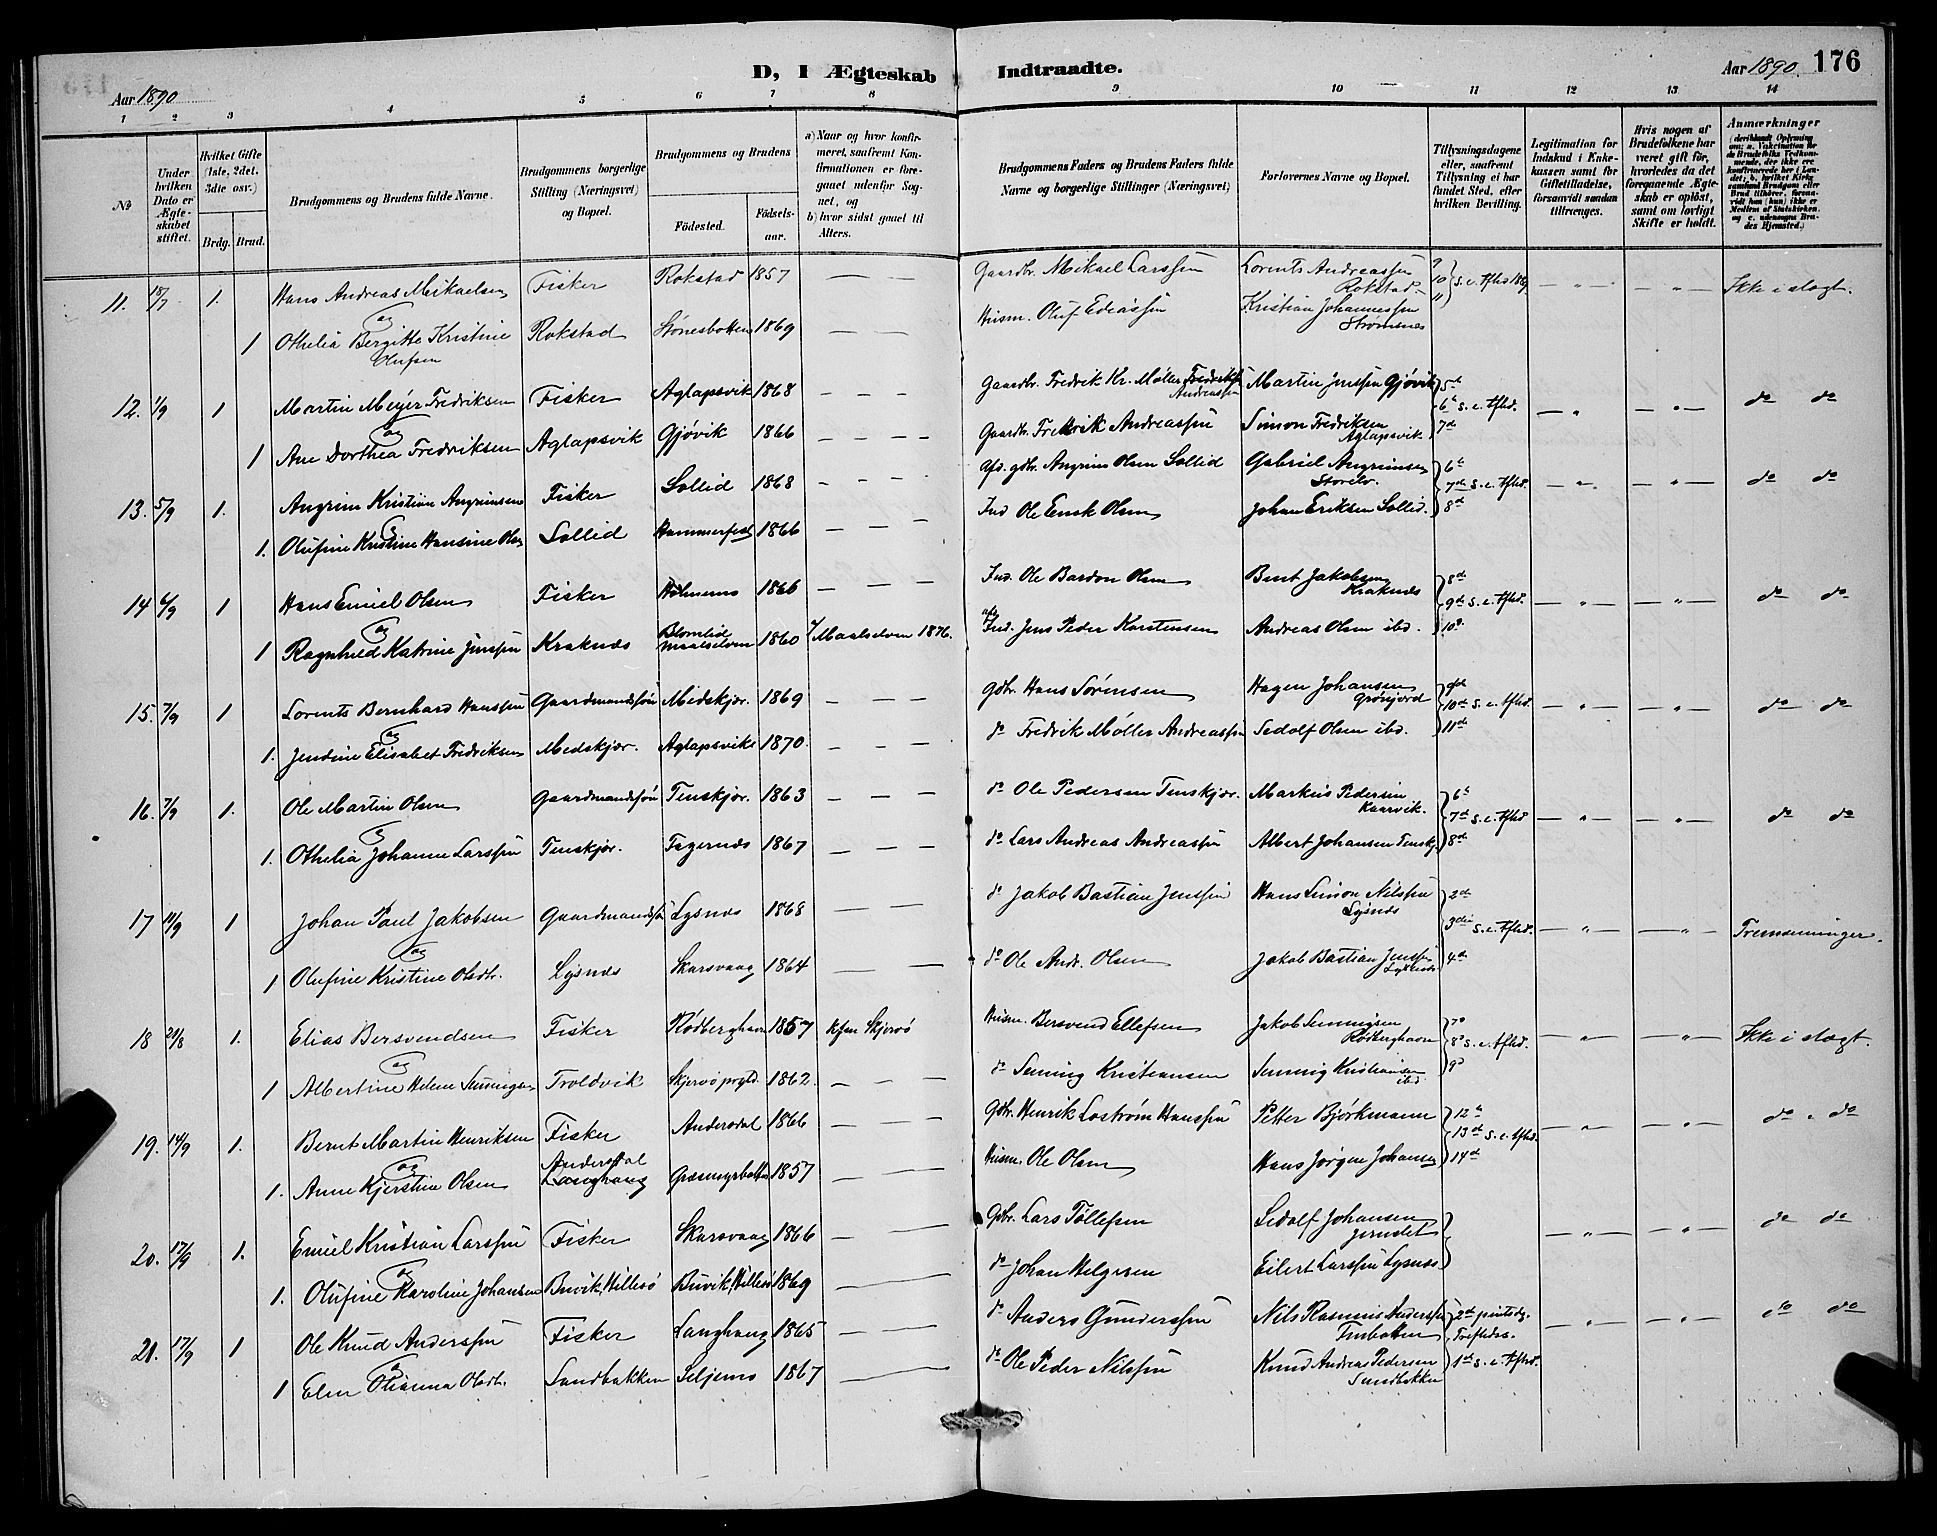 D, I Ægteskab Indtraadte.
Aar 1890
Aar 1890. 176
1 2 3 4 5 6 7 8 9 10 11 12 13 14
No
Under hvilken Dato er Ægteskabet stiftet.
Hvilket Gifte (1ste, 2det, 3die osv.)
Brdg. Brud.
Brudgommens og Brudens fulde Navne.
Brudgommens borgerlige Stilling (Næringsvei) og Bopæl.
Brudgommens og Brudens
Fødested. Fødselsaar.
a) Naar og hvor konfirmeret, saafremt Konfirmationen er foregaaet udenfor Sognet, og
b) hvor sidst gaaet til Alters.
Brudgommens Faders og Brudens Faders fulde Navne og borgerlige Stillinger (Næringsvei)
Forlovernes Navne og Bopæl.
Tillysningsdagene eller, saafremt Tillysning ei har fundet Sted, efter hvilken Bevilling.
Legitimation for Indskud i Enkekassen samt for Giftetilladelse, forsaavidt saadan tiltrænges.
Hvis nogen af Brudefolkene har været gift før, hvorledes da det foregaaende Ægteskab er opløst, samt om lovligt Skifte er holdt.
Anmærkninger
11. 18/7 1. Hans Andreas Mikaelsen Fisker Rokstad 1857 — — — Gaardbr. Mikael Larssen Lorents Andreassen Rokstad 9 10 11 s. e. tfhd. — " — — " — Ikke i slægt.
og
1 Othelia Bergitte Kristine Olufsen Rokstad Stønesbotten 1869 — — — Husm. Oluf Edeassen Kristian Johannessen Strømsnes
12. 1/9 1 Martin Meyer Fredriksen Fisker Aglapsvik 1868 — — — Gaardbr. Fredrik Kr. Møller Andreassen Martin Jenssen Gjøvik 5te 6te s. e. tfhd. 7de — " — " — do do
og
1 Ane Dorthea Fredriksen Aglapsvik Gjøvik 1866 — — — Gaardbr. Fredrik Andreassen Simon Fredriksen Aglapsvik
13. 5/9 1. Angrim Kristian Angrimsen Fisker Sollid 1868 — — — afd. gdbr. Angrim Olsen Sollid Gabriel Angrimsen 6te 7de s. e. tfhd. 8de — " — — " — do do
og
1. Olufine Kristine Hansine Olsen Sollid Hammerfest 1866 — — — Ind. Ole Olsen Johan Eriksen Sollid.
14 6/9 1 Hans Emiel Olsen Fisker Holmenes 1866 — — — Ind. Ole Bardon Olsen Bent Jakobsen Kraknes 8de 9de s. e. tfhd. 10de — " — — " — do do
og
1 Ragnhild Katrine Jenssen Kraknes Blomlid Maalselven 1860 Maalselven 1876. Ind. Jens Peder Karstensen Andreas Olsen ibd.
15. 7/9 1 Lorents Bernhard Hanssen Gaardmandssøn Medskjær. 1869 — — — Gdbr. Hans Sørensen Hagen Johansen Grønjord 9de 10de s. e. tfhd. 11de — " — — " — do do
og
1. Jendine Elisabet Fredriksen Medskjær. Aglapsvik 1870. — — — do Fredrik Møller Andreassen Sedolf Olsen ibd.
16. 7/9 1. Ole Martin Olsen Gaardmandssøn Tenskjær. 1863 — — — do Ole Pedersen Tenskjær. Markus Pedersen Kaarvik. 6te 7de s. e. tfhd 8de — " — — " — do do
og
1. Othelia Johanne Larssen Tenskjær. Fagernes 1867 — — — do Lars Andreas Andreassen Albert Johansen Tenskj.
17 11/9 1 Johan Paul Jakobsen Gaardmandssøn Lysnes 1868 — — — do Jakob Bastian Jenssen Hans Simon Nilssen Lysnes 2de 3die s. e. tfhd. 4de — " — — " — Fremmenninger.
og
1 Olufine Kristine Olsdtr. Lysnes Skarsvaag 1864 — — — do Ole Andr. Olsen Jakob Bastian Jenssen Lysnes
18 21/8 1. Elias Bersvendsen Fisker Rødberghavn 1857 Kfm Skjervø Husm. Bersvend Ellefsen Jakob Senningsen Rødberghavn 7de 8de s. e. tfhd. 9de — " — — " — Ikke i slægt.
og
1 Albertine Helene Senningsen Troldvik Skjervø prgld. 1862. — — — do Senning Kristiansen Senning Kristiansen ibd.
19. 14/9 1. Bernt Martin Henriksen Fisker Andersdal 1866 — — — Gdbr. Henrik Lostrøm Hanssen Petter Bjørkmann 12te 13de s. e. tfhd. 14de — " — — " — do " do
og
1. Anne Kjerstine Olsen Andersdal Langhaug Græsmyrbotten 1857 — — Husm. Ole Olsen Hans Jørgen Johansen
20. 17/9 1. Emiel Kristian Larssen Fisker Skarsvaag 1866 — — Gdbr. Lars Tøllefsen Sedolf Johansen — " — — " — do do
og
1. Olufine Karoline Johansen Buvik, Hillesø Buvik, Hillesø 1869 — — do Johan Helgesen Eilert Larssen Lysnes
21. 17/9 1 Ole Knud Anderssen Fisker Langhaug 1865 — — do Anders Gunderssen Nils Rasmus Anderssen Finbotten 2de pintsdg. Treftds. 1ste s. e. tfhd. — " — — " — do do
og
1 Elen Olianna Olsdtr. Sandbakken Seljenes 1867 — — do Ole Peder Nilssen Knud Andreas Pedersen Sandbakken